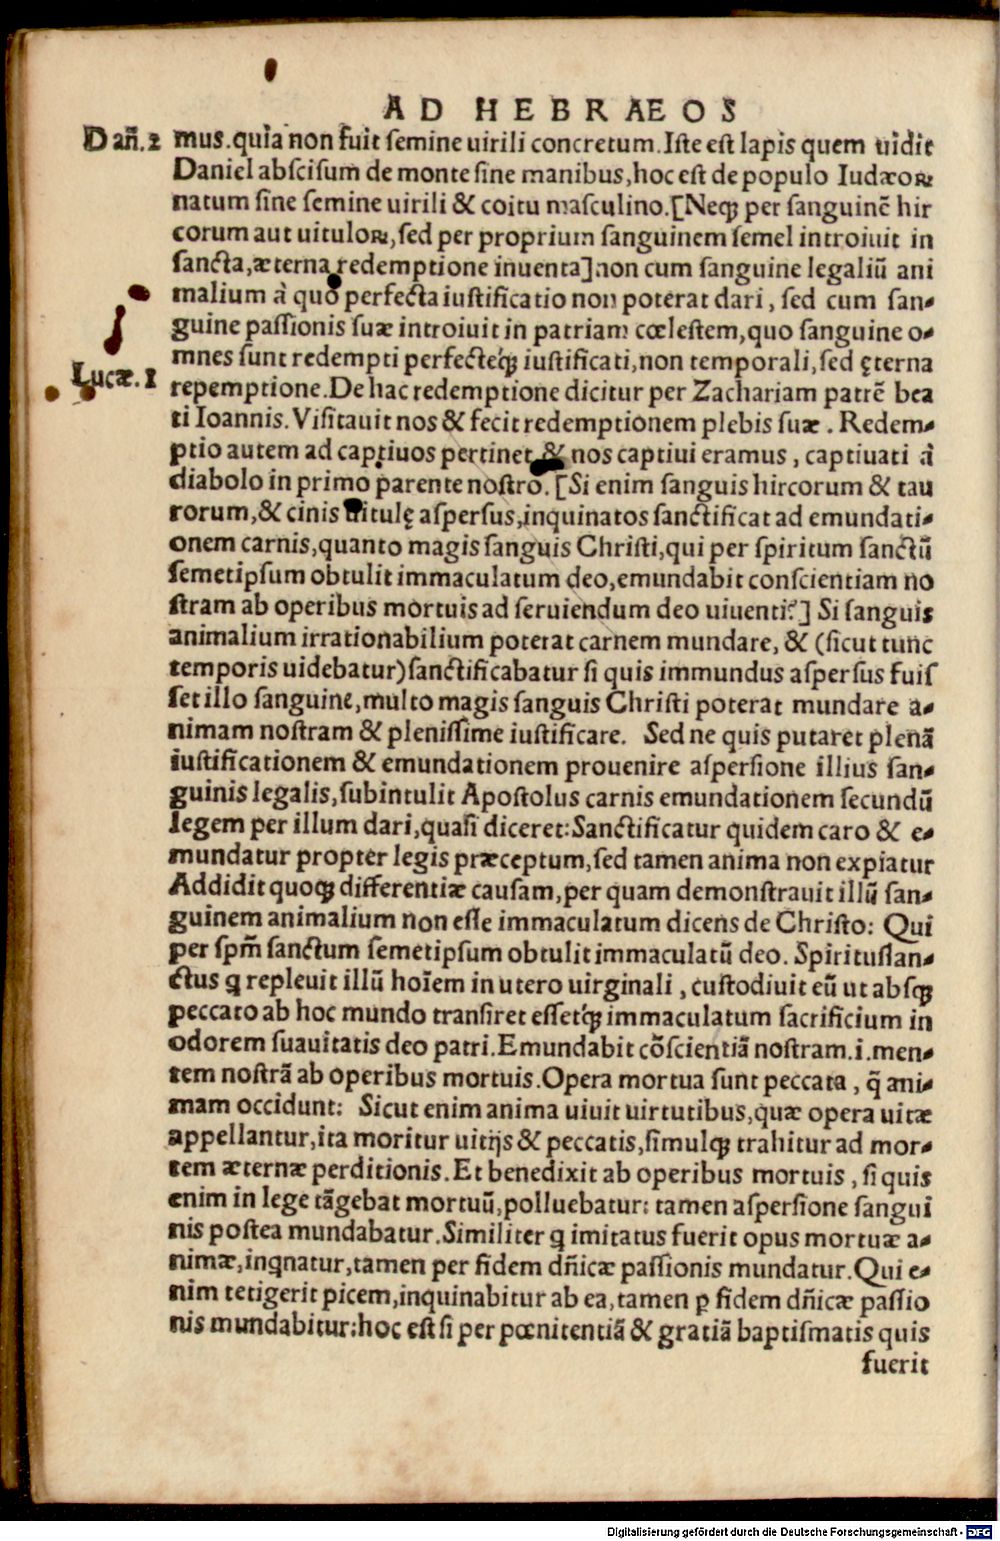 AD HEBRAEOS
Dañ.2 mus.quia non fuit semine uirili concretum.Iste est lapis quem uidit
Daniel abscisum de monte sine manibus,hoc est de populo Iudæoꝝ
natum sine semine uirili & coitu masculino.[Neqꝫ per sanguinē hir
corum aut uituloꝝ,sed per proprium sanguinem semel introiuit in
sancta,æterna redemptione inuenta]non cum sanguine legaliū ani
malium à quo perfecta iustificatio non poterat dari, sed cum san-
guine passionis suæ introiuit in patriam cœlestem,quo sanguine o-
mnes sunt redempti perfecteqꝫ iustificati,non temporali,sed ęterna
Lucæ.1 repemptione.De hac redemptione dicitur per Zachariam patrē bea
ti Ioannis. Visitauit nos & fecit redemptionem plebis suæ. Redem-
ptio autem ad captiuos pertinet, & nos captiui eramus, captiuati à
diabolo in primo parente nostro.[Si enim sanguis hircorum & tau
rorum,& cinis uitulę aspersus,inquinatos sanctificat ad emundati-
onem carnis,quanto magis sanguis Christi,qui per spiritum sanctū
semetipsum obtulit immaculatum deo,emundabit conscientiam no
stram ab operibus mortuis ad seruiendum deo uiuenti?] Si sanguis
animalium irrationabilium poterat carnem mundare, & (sicut tunc
temporis uidebatur)sanctificabatur si quis immundus aspersus fuis
set illo sanguine,multo magis sanguis Christi poterat mundare a-
nimam nostram & plenissime iustificare. Sed ne quis putaret plenā
iustificationem & emundationem prouenire aspersione illius san-
guinis legalis,subintulit Apostolus carnis emundationem secundū
legem per illum dari,quasi diceret:Sanctificatur quidem caro & e-
mundatur propter legis præceptum,sed tamen anima non expiatur
Addidit quoqꝫ differentiæ causam,per quam demonstrauit illū san-
guinem animalium non esse immaculatum dicens de Christo: Qui
per spm̄ sanctum semetipsum obtulit immaculatū deo. Spiritussan-
ctus ꝗ repleuit illū hoīem in utero uirginali, custodiuit eū ut absqꝫ
peccato ab hoc mundo transiret essetqꝫ immaculatum sacrificium in
odorem suauitatis deo patri.Emundabit cōscientiā nostram.i.men-
tem nostrā ab operibus mortuis.Opera mortua sunt peccata, q̄ ani-
mam occidunt: Sicut enim anima uiuit uirtutibus,quæ opera uitæ
appellantur,ita moritur uitijs & peccatis,simulqꝫ trahitur ad mor-
tem æternæ perditionis.Et benedixit ab operibus mortuis, si quis
enim in lege tāgebat mortuū,polluebatur: tamen aspersione sangui
nis postea mundabatur.Similiter ꝗ imitatus fuerit opus mortuæ a-
nimæ,inꝗnatur,tamen per fidem dñicæ passionis mundatur.Qui e-
nim tetigerit picem,inquinabitur ab ea,tamen ꝑ fidem dñicæ passio
nis mundabitur:hoc est si per pœnitentiā & gratiā baptismatis quis
fuerit
Digitalisierung gefördert durch die Deutsche Forschungsgemeinschaft - DFG